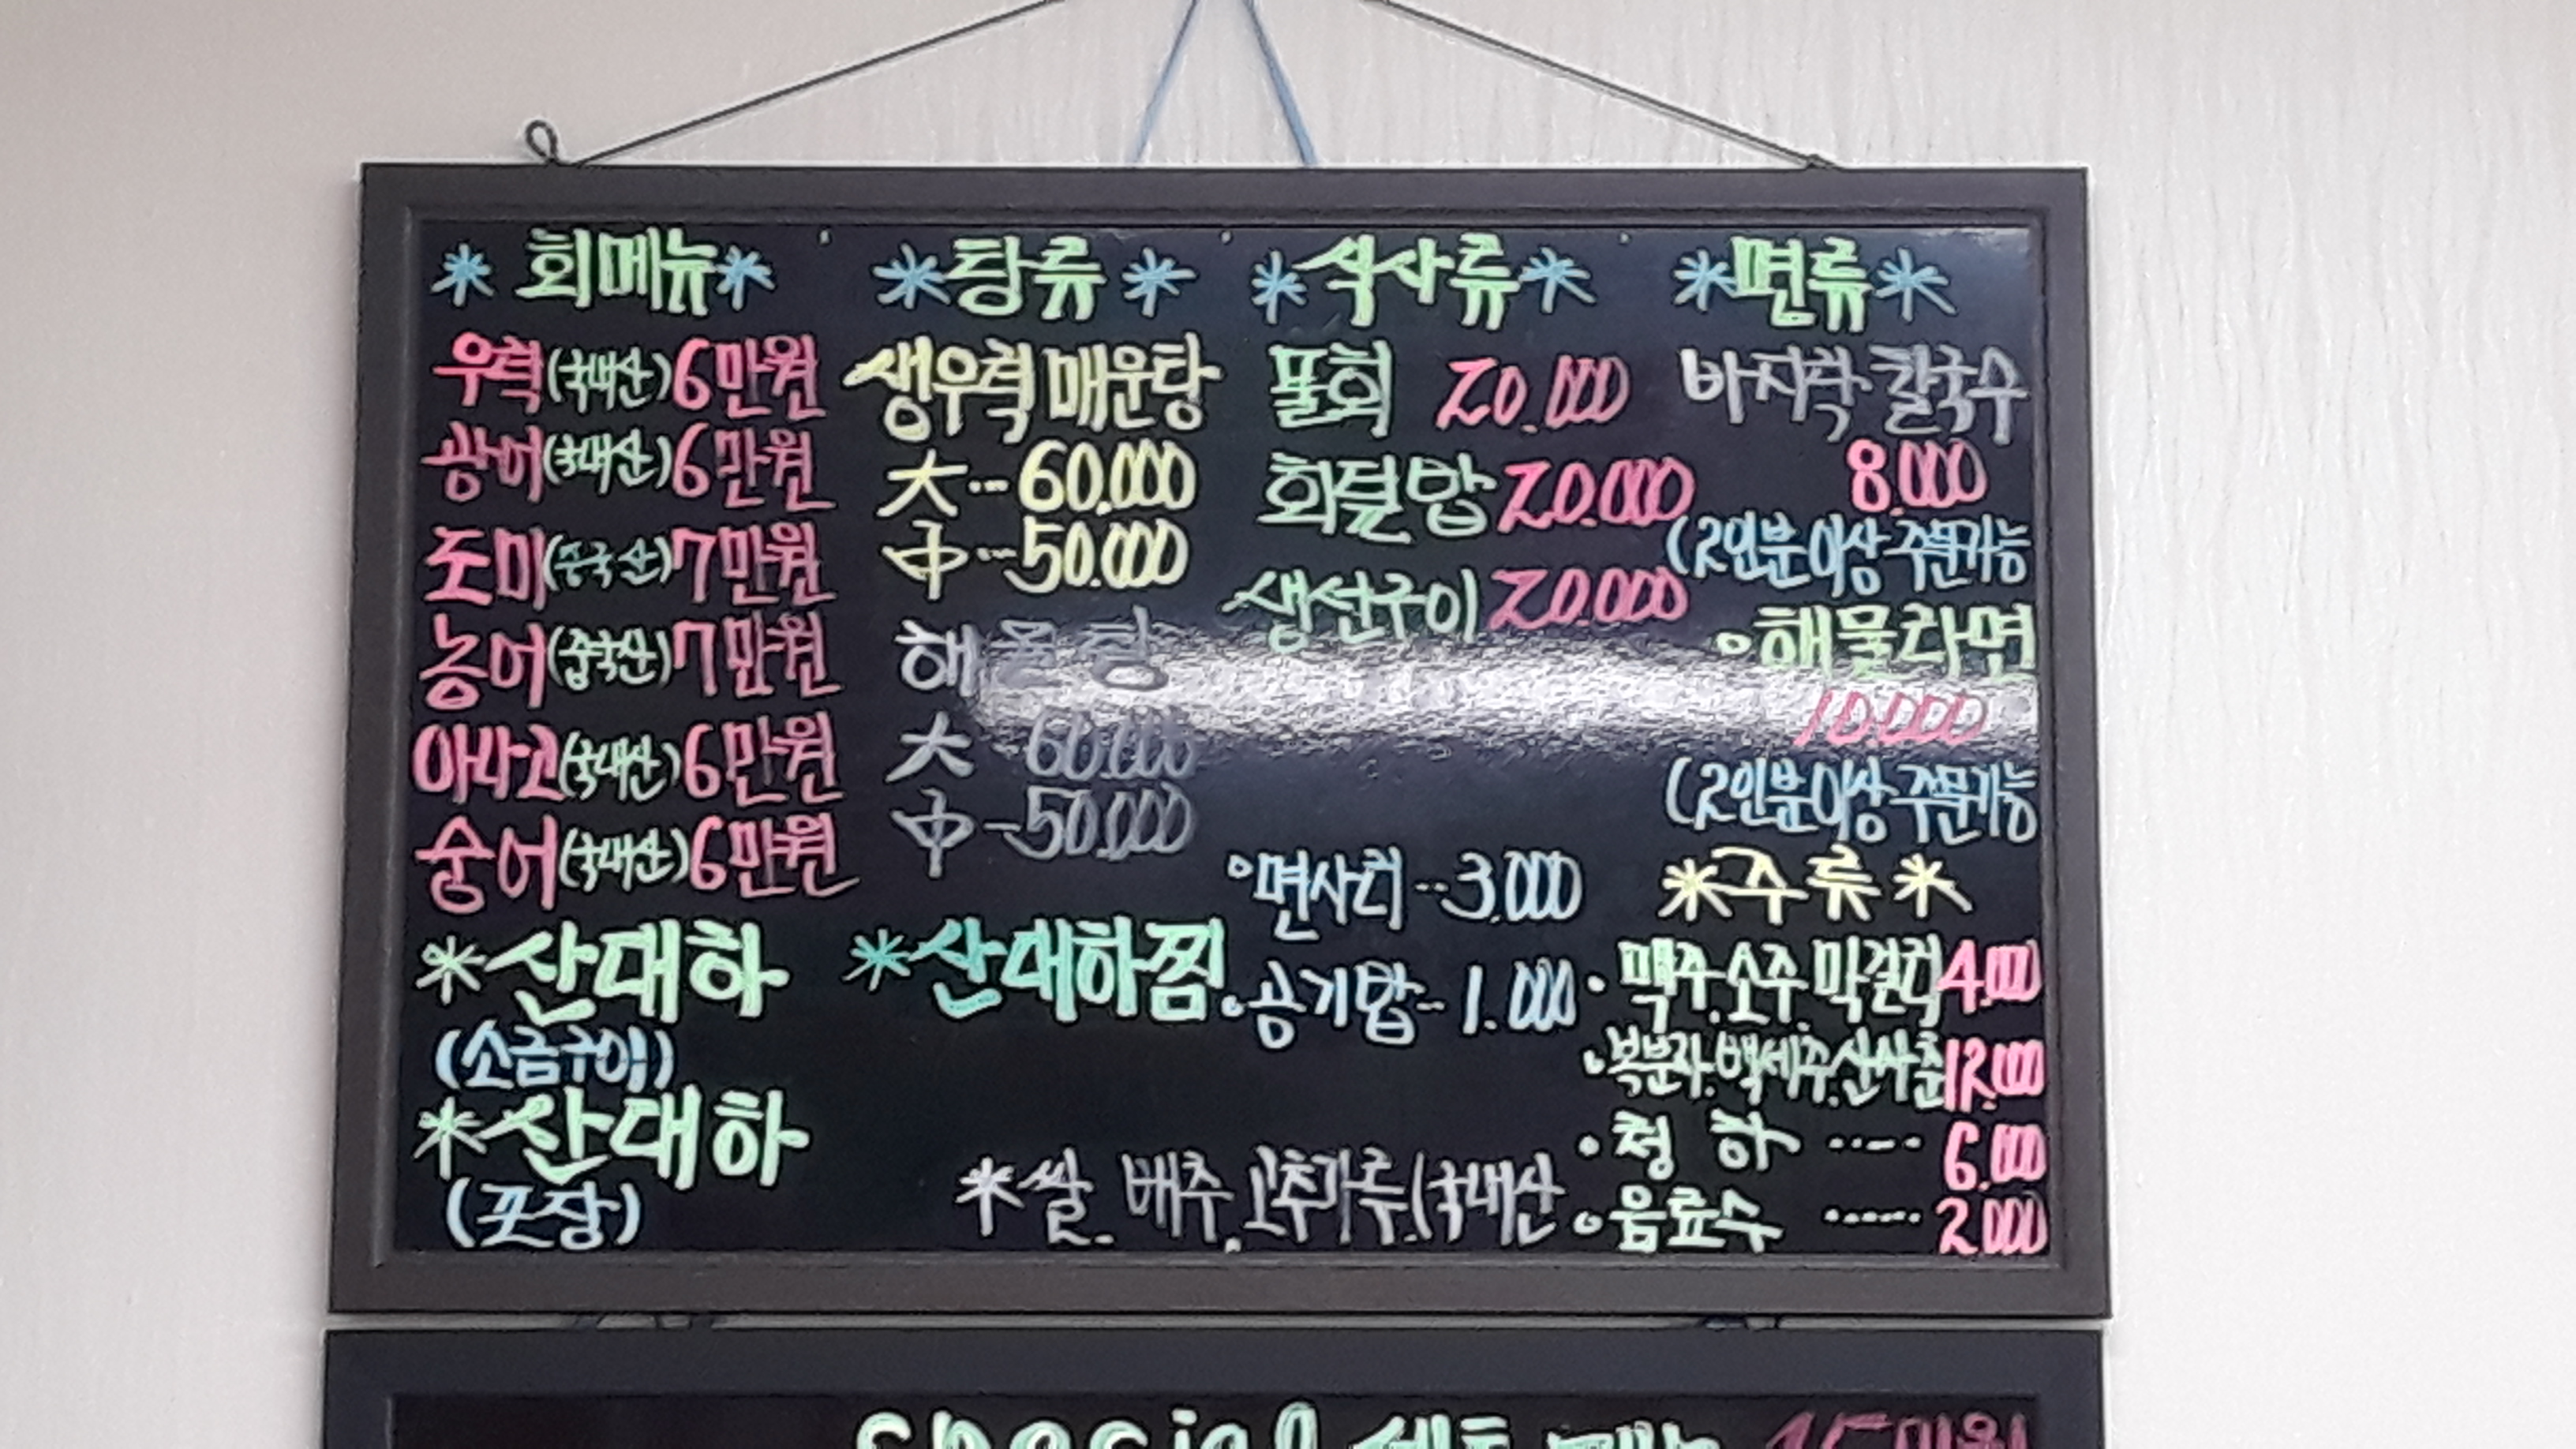 * 회메뉴 *
우럭(국내산) 6만원
광어(국내산) 6만원
도미(중국산) 7만원
농어(중국산) 7만원
아나고(국내산) 6만원
숭어(국내산) 6만원
* 산대하
(소금구이)
* 산대하
(포장)
* 탕류 *
생우럭 매운탕
大 --- 60.000
中 --- 50.000
해물탕
大 60.000
中 - 50.000
* 산대하찜
* 식사류 *
물회 20.000
회덮밥 20.000
생선구이 20.000
◦ 면사리 -- 3.000
◦ 공기밥 -- 1.000
* 쌀. 배추. 고추가루.(국내산
* 면류 *
바지락 칼국수
8.000
(2인분이상 주문가능
◦ 해물라면
10.000
(2인분이상 주문가능
* 주류 *
· 맥주.소주.막걸리 4.000
· 복분자.백세주.산사춘 12.000
· 청하 ----- 6.000
◦ 음료수 ------ 2.000
special 세트 메뉴 15만원